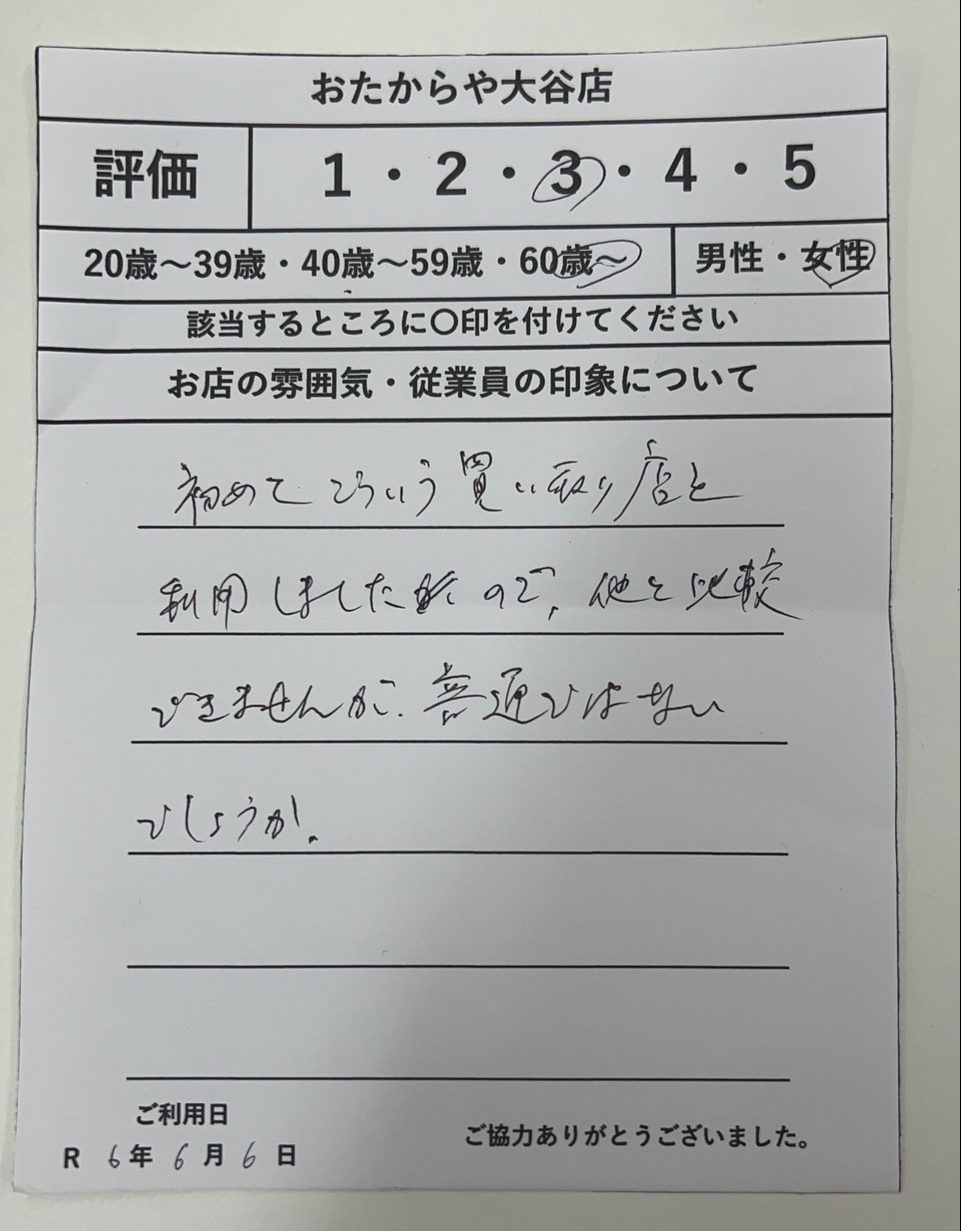 おたからや大谷店
評価 1・2・3・4・5
20歳～39歳・40歳～59歳・60歳～ 男性・女性
該当するところに〇印を付けてください
お店の雰囲気・従業員の印象について
初めてこういう買い取り店を
利用しました ので、他と比較
できませんが、普通ではない
でしょうか。
ご利用日
R 6年 6月 6日
ご協力ありがとうございました。